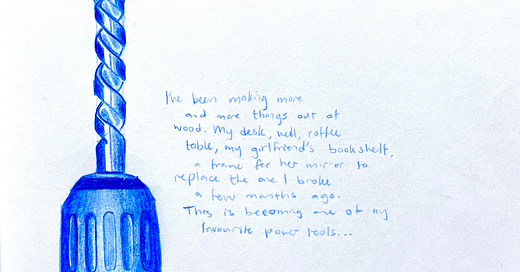 I've been making more
and more things out of
wood. My desk, well, coffee
table, my girlfriend's bookshelf,
a frame for her mirror to
replace the one I broke
a few months ago.
This is becoming one of my
favourite power tools...